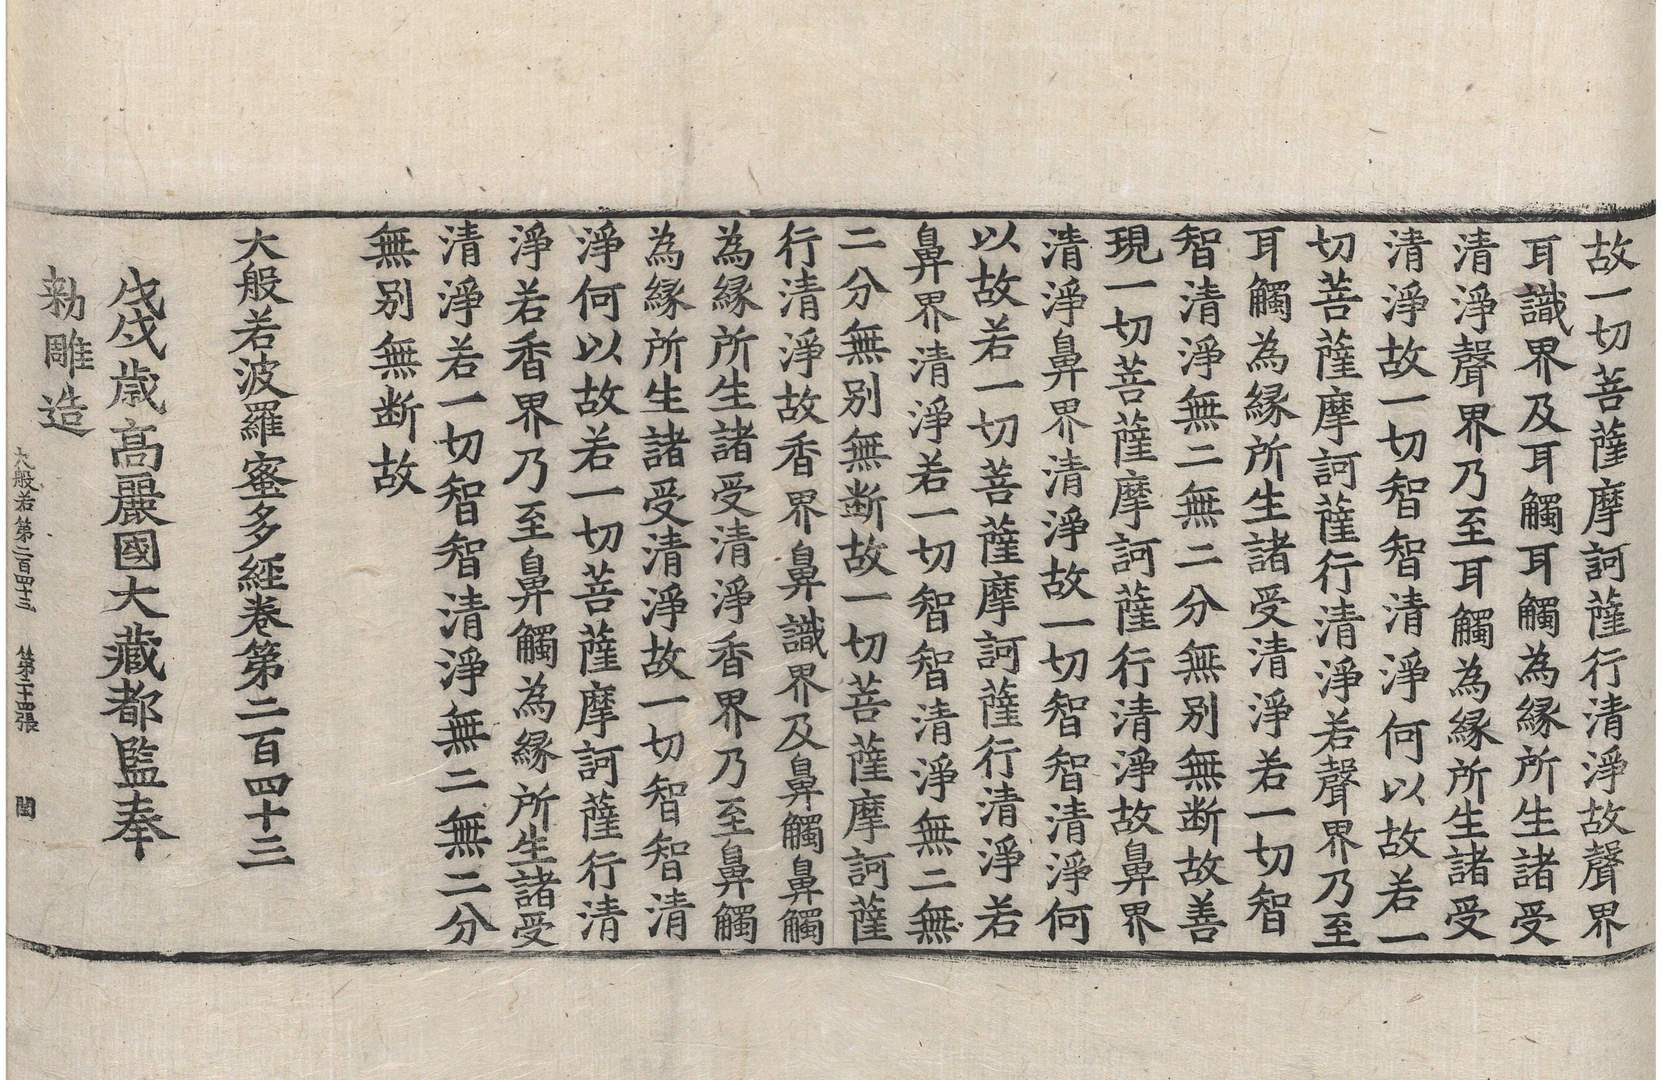 故一切菩薩摩訶薩行清淨故聲界
耳識界及耳觸耳觸為縁所生諸受
清淨聲界乃至耳觸為縁所生諸受
清淨故一切智智清淨何以故若一
切菩薩摩訶薩行清淨若聲界乃至
耳觸為縁所生諸受清淨若一切智
智清淨無二無二分無别無断故善
現一切菩薩摩訶薩行清淨故鼻界
清淨鼻界清淨故一切智智清淨何
以故若一切菩薩摩訶薩行清淨若
鼻界清淨若一切智智清淨無二無
二分無别無断故一切菩薩摩訶薩
行清淨故香界鼻識界及鼻觸鼻觸
為縁所生諸受清淨香界乃至鼻觸
為縁所生諸受清淨故一切智智清
淨何以故若一切菩薩摩訶薩行清
淨若香界乃至鼻觸為縁所生諸受
清淨若一切智智清淨無二無二分
無别無断故
大般若波羅蜜多經卷第二百四十三
戊戌歲高麗國大藏都監奉
勑雕造
大般若第二百四十三 第二十四張 閏